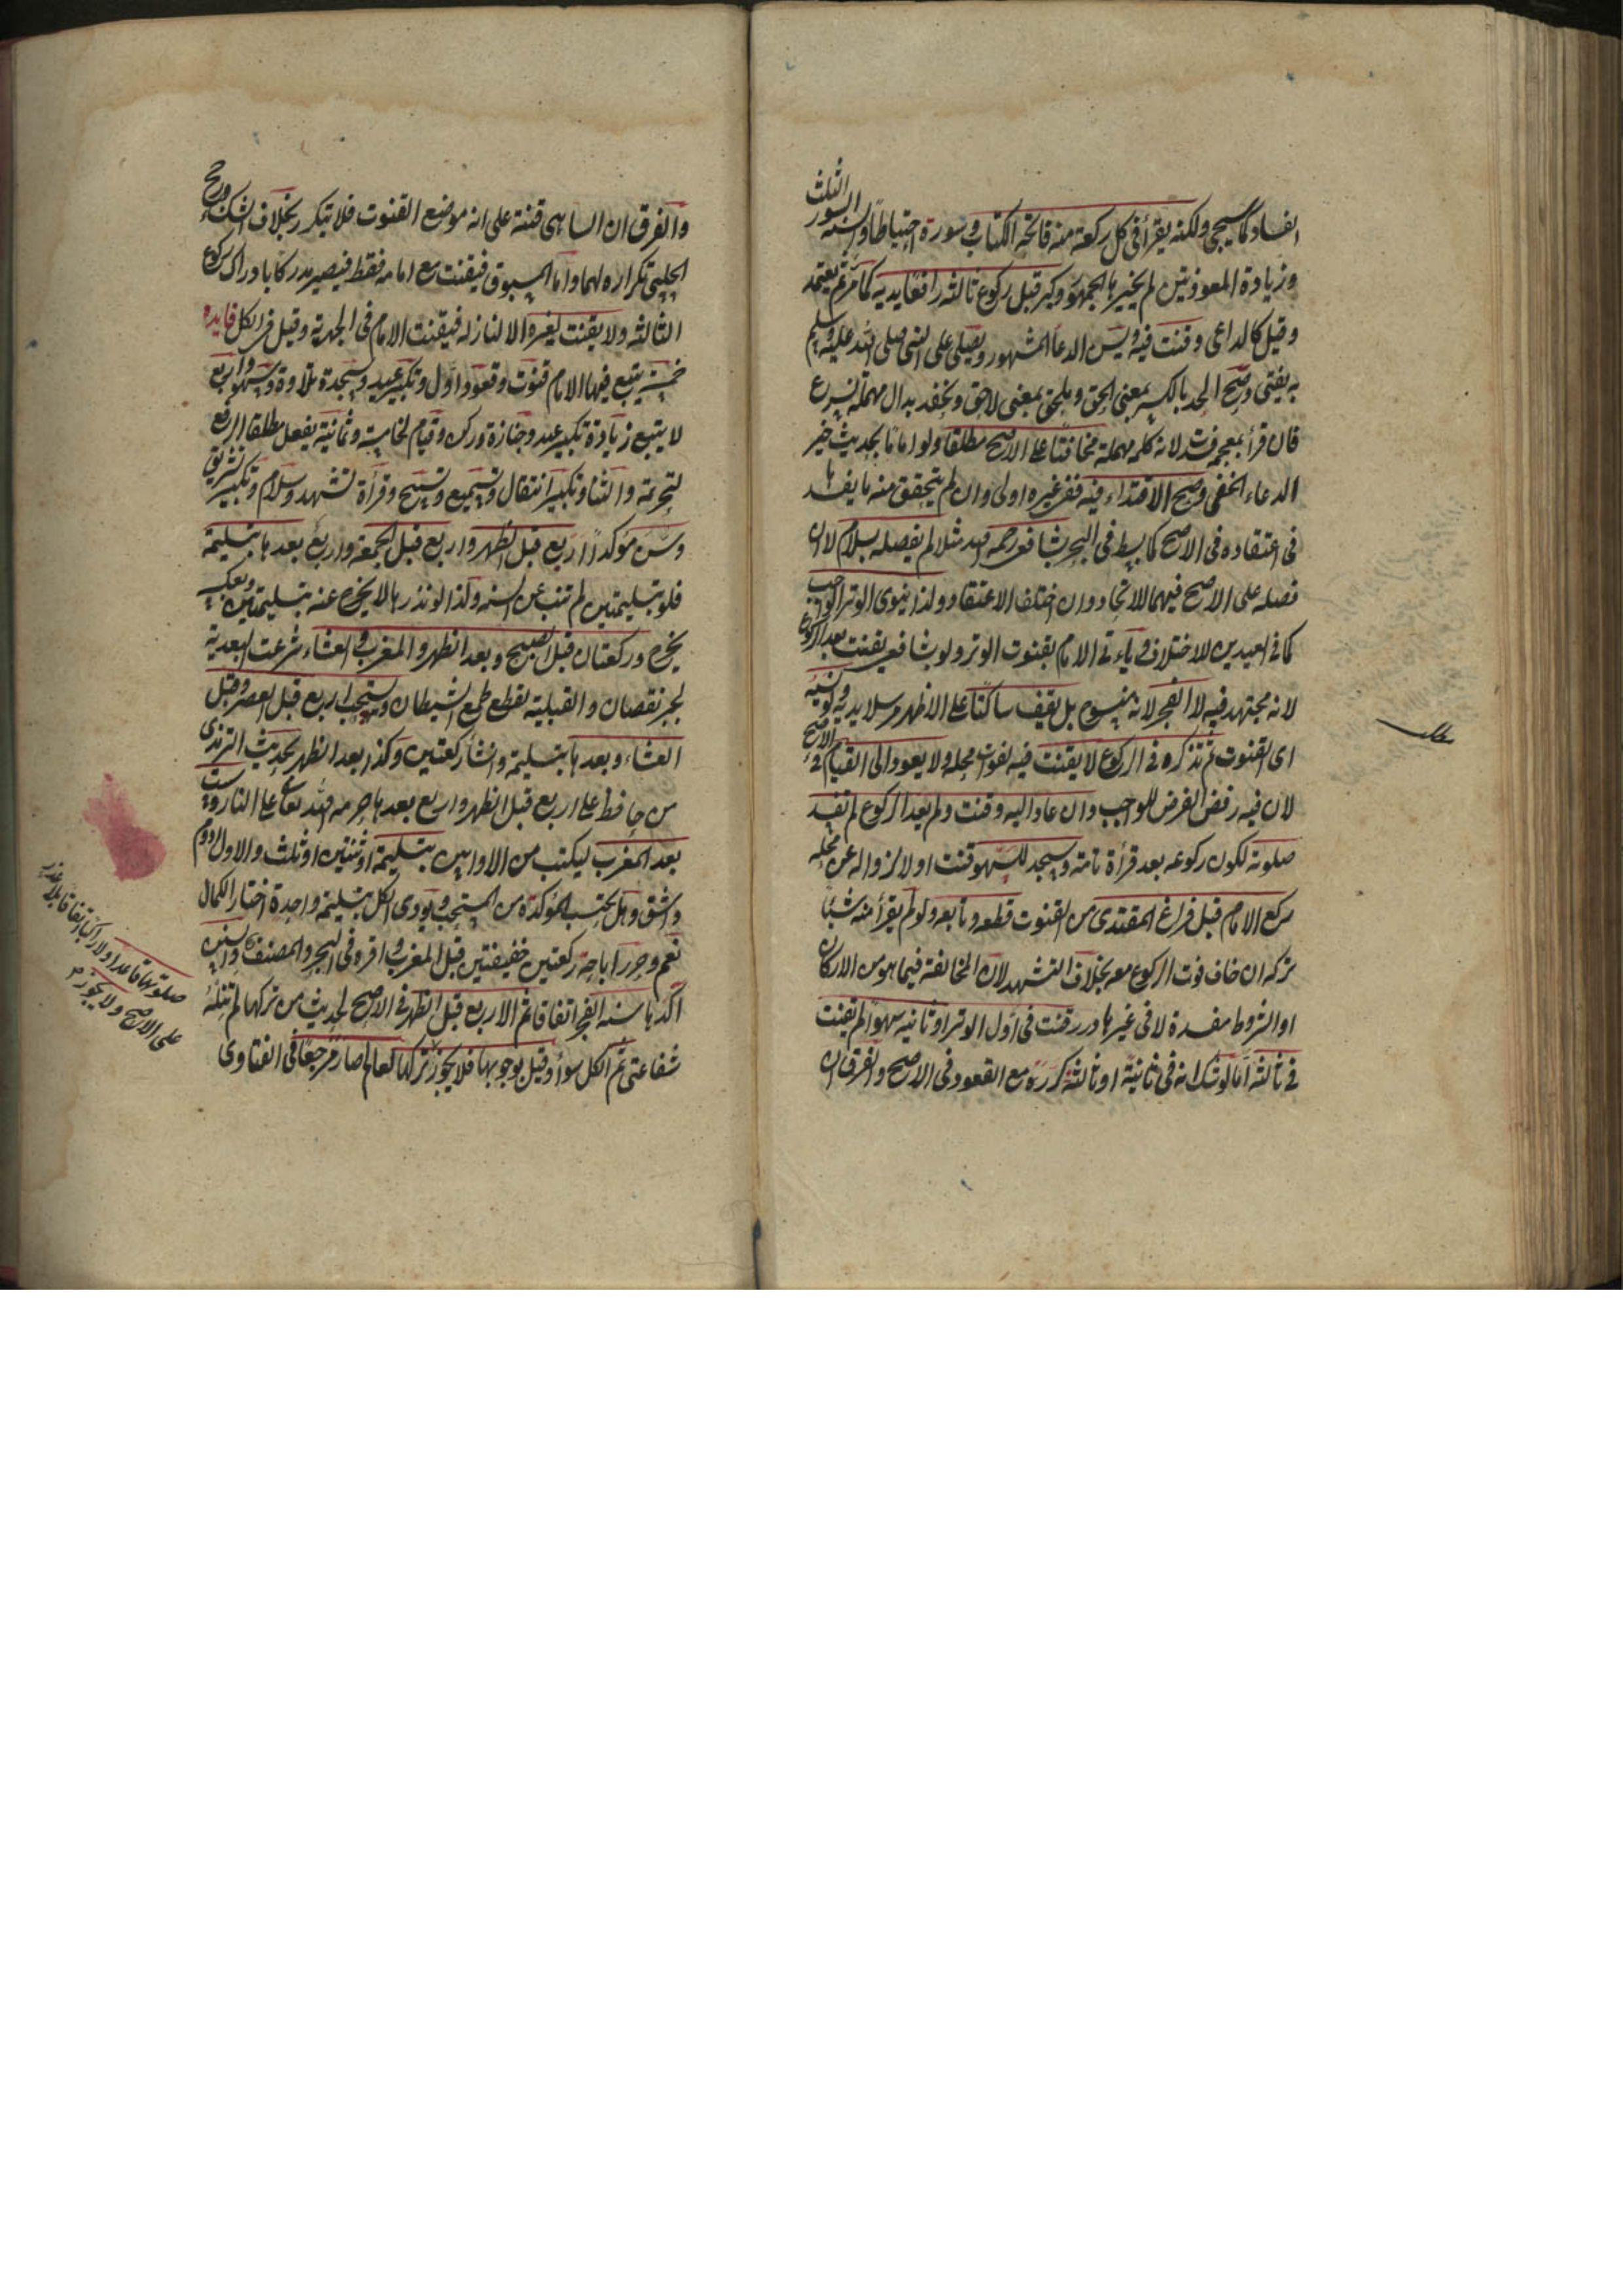 الفساد كما سيجئ ولكنه يقرأ فى كل ركعة منه فاتحة الكتاب وسورة احتياطا والسنة السور الثلث
وزيادة المعوذتين لم يخترها الجمهور وكبر قبل ركوع ثالثه رافعا يديه كما مر ثم يعتمد
وقيل كالداعى وقنت فيه ويسن الدعا المشهور ويصلى على النبى صلى الله عليه وسلم
به يفتى وصح الجد بالكسر بمعنى الحق وملحق بمعنى لاحق ونحفد بدال مهملة نسرع
فان قرأ بمعجمة فسد لانه كلمة مهملة مخافتا على الاصح مطلقا ولو اماما لحديث خير
الدعاء الخفى وصح الاقتداء فيه ففى غيره اولى وان لم يتحقق منه ما يفسدها
فى اعتقاده فى الاصح كما بسط فى البحر بشافعى رحمه الله مثلا لم يفصله بسلام لا ان
فصله على الاصح فيهما للاتحاد وان اختلف الاعتقاد ولذا ينوى الوتر لا الوتر الواجب
كما فى العيدين للاختلاف ويأتى الامام بقنوت الوتر ولو بشافعى يقنت بعد الركوع
لانه مجتهد فيه لا الفجر لانه منسوخ بل يقف ساكتا على الاظهر مرسلا يديه ولو نسيه
اى القنوت ثم تذكره فى الركوع لا يقنت فيه لفوات محله ولا يعود الى القيام فى الاصح
لان فيه رفض الفرض للواجب وان عاد اليه وقنت ولم يعد الركوع لم تفسد
صلوته لكون ركوعه بعد قرأة تامة وسجد للسهو قنت او لا لزواله عن محله
ركع الامام قبل فراغ المقتدى من القنوت قطعه وتابعه ولو لم يقرأ منه شيئا
تركه ان خاف فوت الركوع معه بخلاف التشهد لان المخالفة فيما هو من الاركان
او الشروط مفسدة لا فى غيرها درر قنت فى اول الوتر او ثانيه سهوا لم يقنت
فى ثالثه اما لو شك انه فى ثانيته او ثالثه كرره مع القعود فى الاصح والفرق ان
والفرق ان الساهى قنته على انه موضع القنوت فلا يتكرر بخلاف الشك ورجح
الحلبى تكراره لهما واما المسبوق فيقنت مع امامه فقط فيصير مدركا بادراك ركوع
الثالثه ولا يقنت لغيره الا لنازله فيقنت الامام فى الجهرية وقيل فى الكل فايده
خمسة يتبع فيها الامام قنوت وقعود اول وتكبير عيد وسجدة تلاوة وسهو واربع
لا يتبع زيادة تكبير عيد وجنازة وركن وقيام لخامسة وثمانية يفعل مطلقا الرفع
لتحريمة والثنا وتكبير انتقال وتسميع وتسبيح وقرأة تشهد وسلام وتكبير تشريق
وسن مؤكدا اربع قبل الظهر واربع قبل الجمعة واربع بعدها بتسليمة
فلو بتسليمتين لم تنب عن السنة ولذا لو نذرها لا يخرج عنه بتسليمتين وبعكسه
يخرج وركعتان قبل الصبح وبعد الظهر والمغرب والعشاء شرعت البعدية
لجبر نقصان والقبلية لقطع طمع الشيطان ويستحب اربع قبل العصر وقبل
العشاء وبعدها بتسليمة وان شأ ركعتين وكذا بعد الظهر لحديث الترمذى
من حافظ على اربع قبل الظهر واربع بعدها حرمه الله تعالى على النار وست
بعد المغرب ليكتب من الاوابين بتسليمة او ثنتين او ثلث والاول ادوم
واشق وهل يحتسب المؤكدة من المستحب ويؤدى الكل بتسليمة واحدة اختار الكمال
نعم وحرر اباحة ركعتين خفيفتين قبل المغرب واقره فى البحر والمصنف والسنن
آكدها سنة الفجر اتفاقا ثم الاربع قبل الظهر فى الاصح لحديث من تركها لم تنله
شفاعتى ثم الكل سوأ وقيل بوجوبها فلا يجوز تركها لعالم صار مرجعا فى الفتاوى
صلوتها قاعدا ولا راكبا اتفاقا بلا عذر
على الاصح ولا يجوز